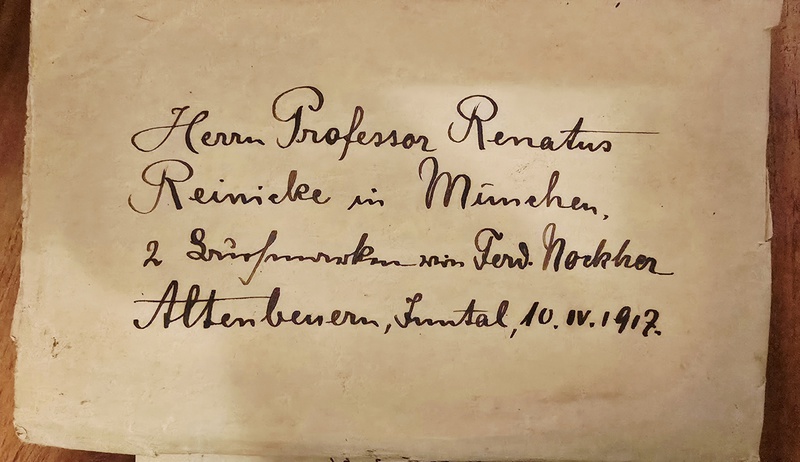 Herrn Professor Renatus
Reinicke in München.
2 Buchmarken von Ferd. Nockher
Altenbeuern, Inntal, 10. IV. 1917.